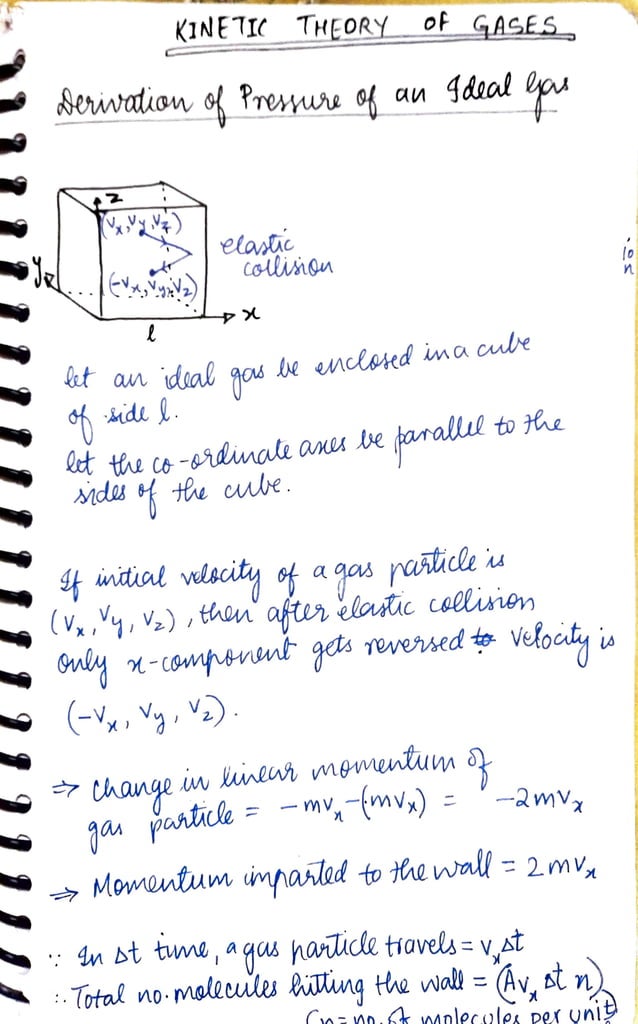 KINETIC THEORY OF GASES
Derivation of Pressure of an Ideal Gas
z
(Vx, Vy, Vz)
elastic
collision
y
(-Vx, Vy, Vz)
x
l
io
n
let an ideal gas be enclosed in a cube
of side l.
let the co-ordinate axes be parallel to the
sides of the cube.
If initial velocity of a gas particle is
(Vx, Vy, Vz), then after elastic collision
only x-component gets reversed velocity is
(-Vx, Vy, Vz).
⇒ change in linear momentum of
gas particle = -mvx-(mvx) = -2mvx
⇒ Momentum imparted to the wall = 2mvx
∵ In Δt time, a gas particle travels = vxΔt
∴ Total no. molecules hitting the wall = (Avx Δt n)
(n = no. of molecules per unit